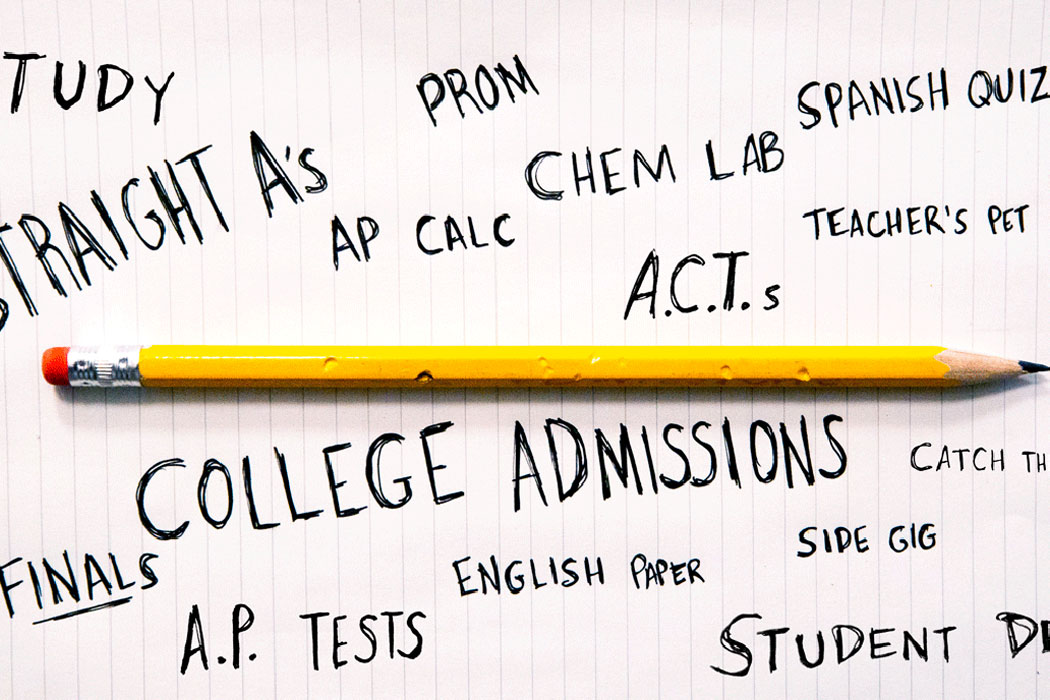 TUDY
PROM
SPANISH QUIZ
STRAIGHT A's
CHEM LAB
AP CALC
TEACHER'S PET
A.C.T.s
COLLEGE ADMISSIONS
CATCH TH
SIDE GIG
FINALS
ENGLISH PAPER
A.P. TESTS
STUDENT DE